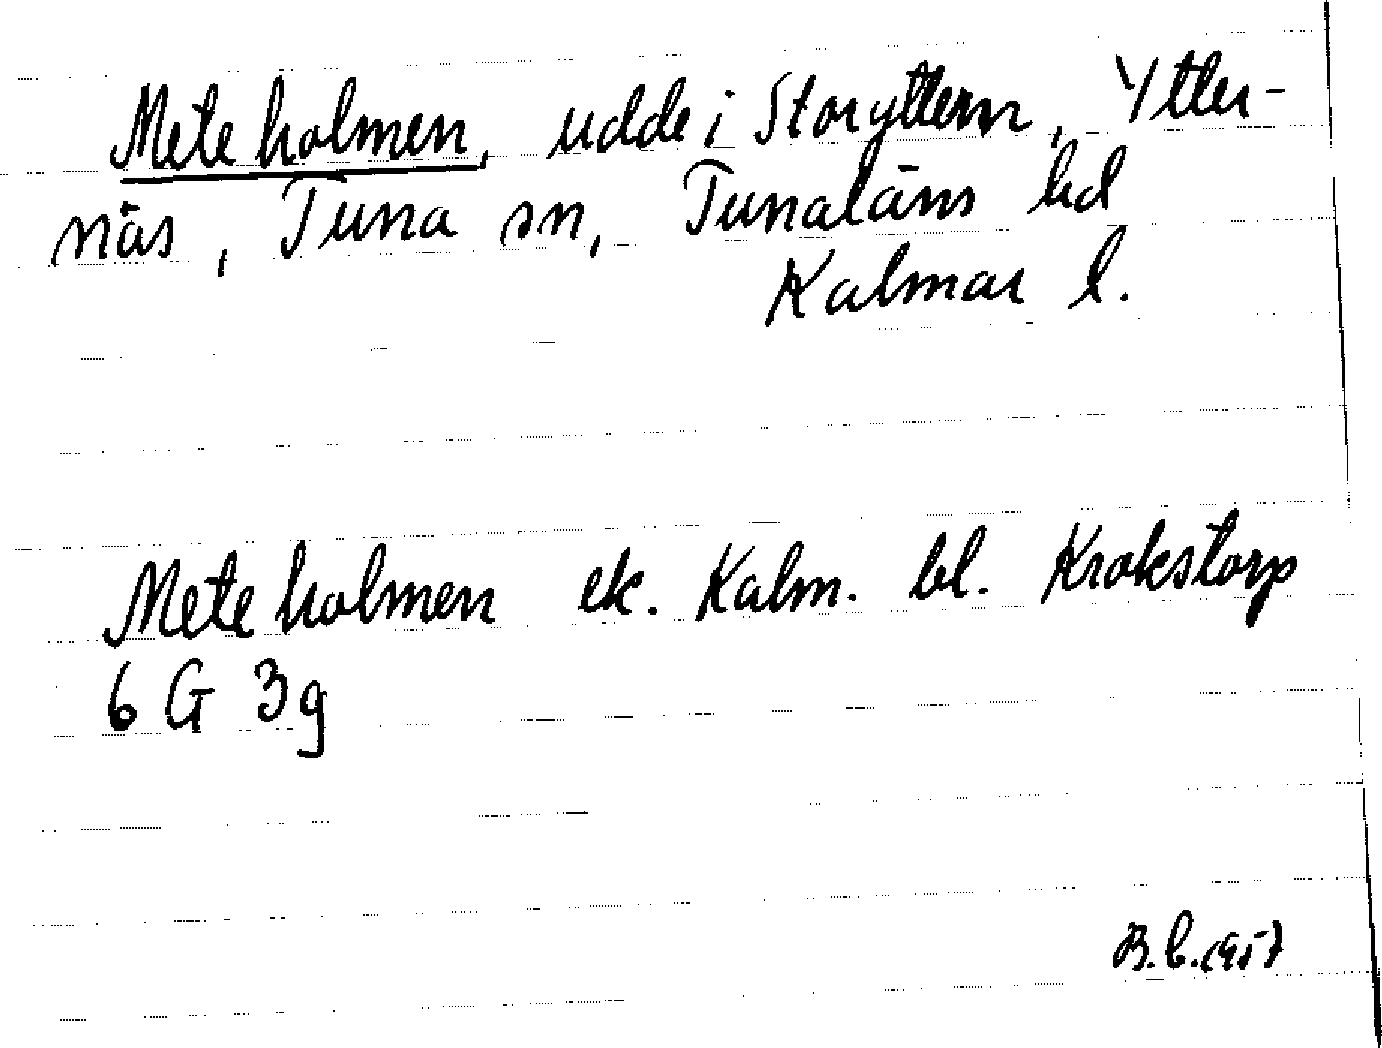 Meteholmen, udde i Storyttern, Ytter-
näs, Tuna sn, Tunaläns hd
Kalmar l.
Meteholmen ek. Kalm. bl. Krokstorp
6 G 3g
B.b. 1957